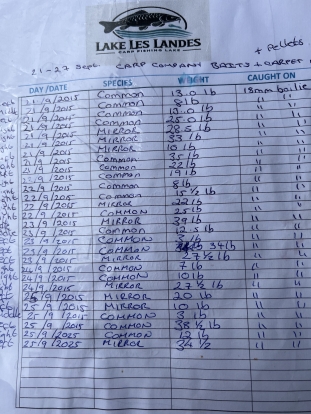 LAKE LES LANDES
CARP FISHING LAKE
+ Pellets
21-27 Sept CARP COMPANY BAITS + CARPET
DAY/DATE SPECIES WEIGHT CAUGHT ON
21/9/2015 Common 13.0 lb 18mm boilie
21/9/2015 Common 8 lb " "
21/9/2015 Common 13.0 lb " "
21/9/2015 Common 25.0 lb " "
21/9/2015 MIRROR 28.5 lb " "
21/9/2015 MIRROR 33 lb " "
21/9/2015 MIRROR 10 lb " "
21/9/2015 Common 35 lb " "
21/9/2015 Common 22 lb " "
/9/2015 Common 19 lb " "
22/9/2015 Common 8 lb " "
22/9/2015 Common 15 ½ lb " "
22/9/2015 MIRROR 22 lb " "
22/9/2015 COMMON 25 lb " "
23/9/2015 MIRROR 39 lb " "
23/9/2015 Common 12.5 lb " "
23/9/2015 COMMON lb " "
23/9/2015 COMMON 34 lb " "
23/9/2015 MIRROR 27 ½ lb " "
24/9/2015 COMMON 7 lb " "
24/9/2015 COMMON 10 lb " "
24/9/2015 MIRROR 27 ½ lb " "
/9/2015 MIRROR 20 lb " "
25/9/2015 MIRROR 10 lb " "
25/9/2015 COMMON 3 lb " "
25/9/2015 COMMON 38 ½ lb " "
25/9/2015 COMMON 12 lb " "
25/9/2025 MIRROR 34 ½ " "